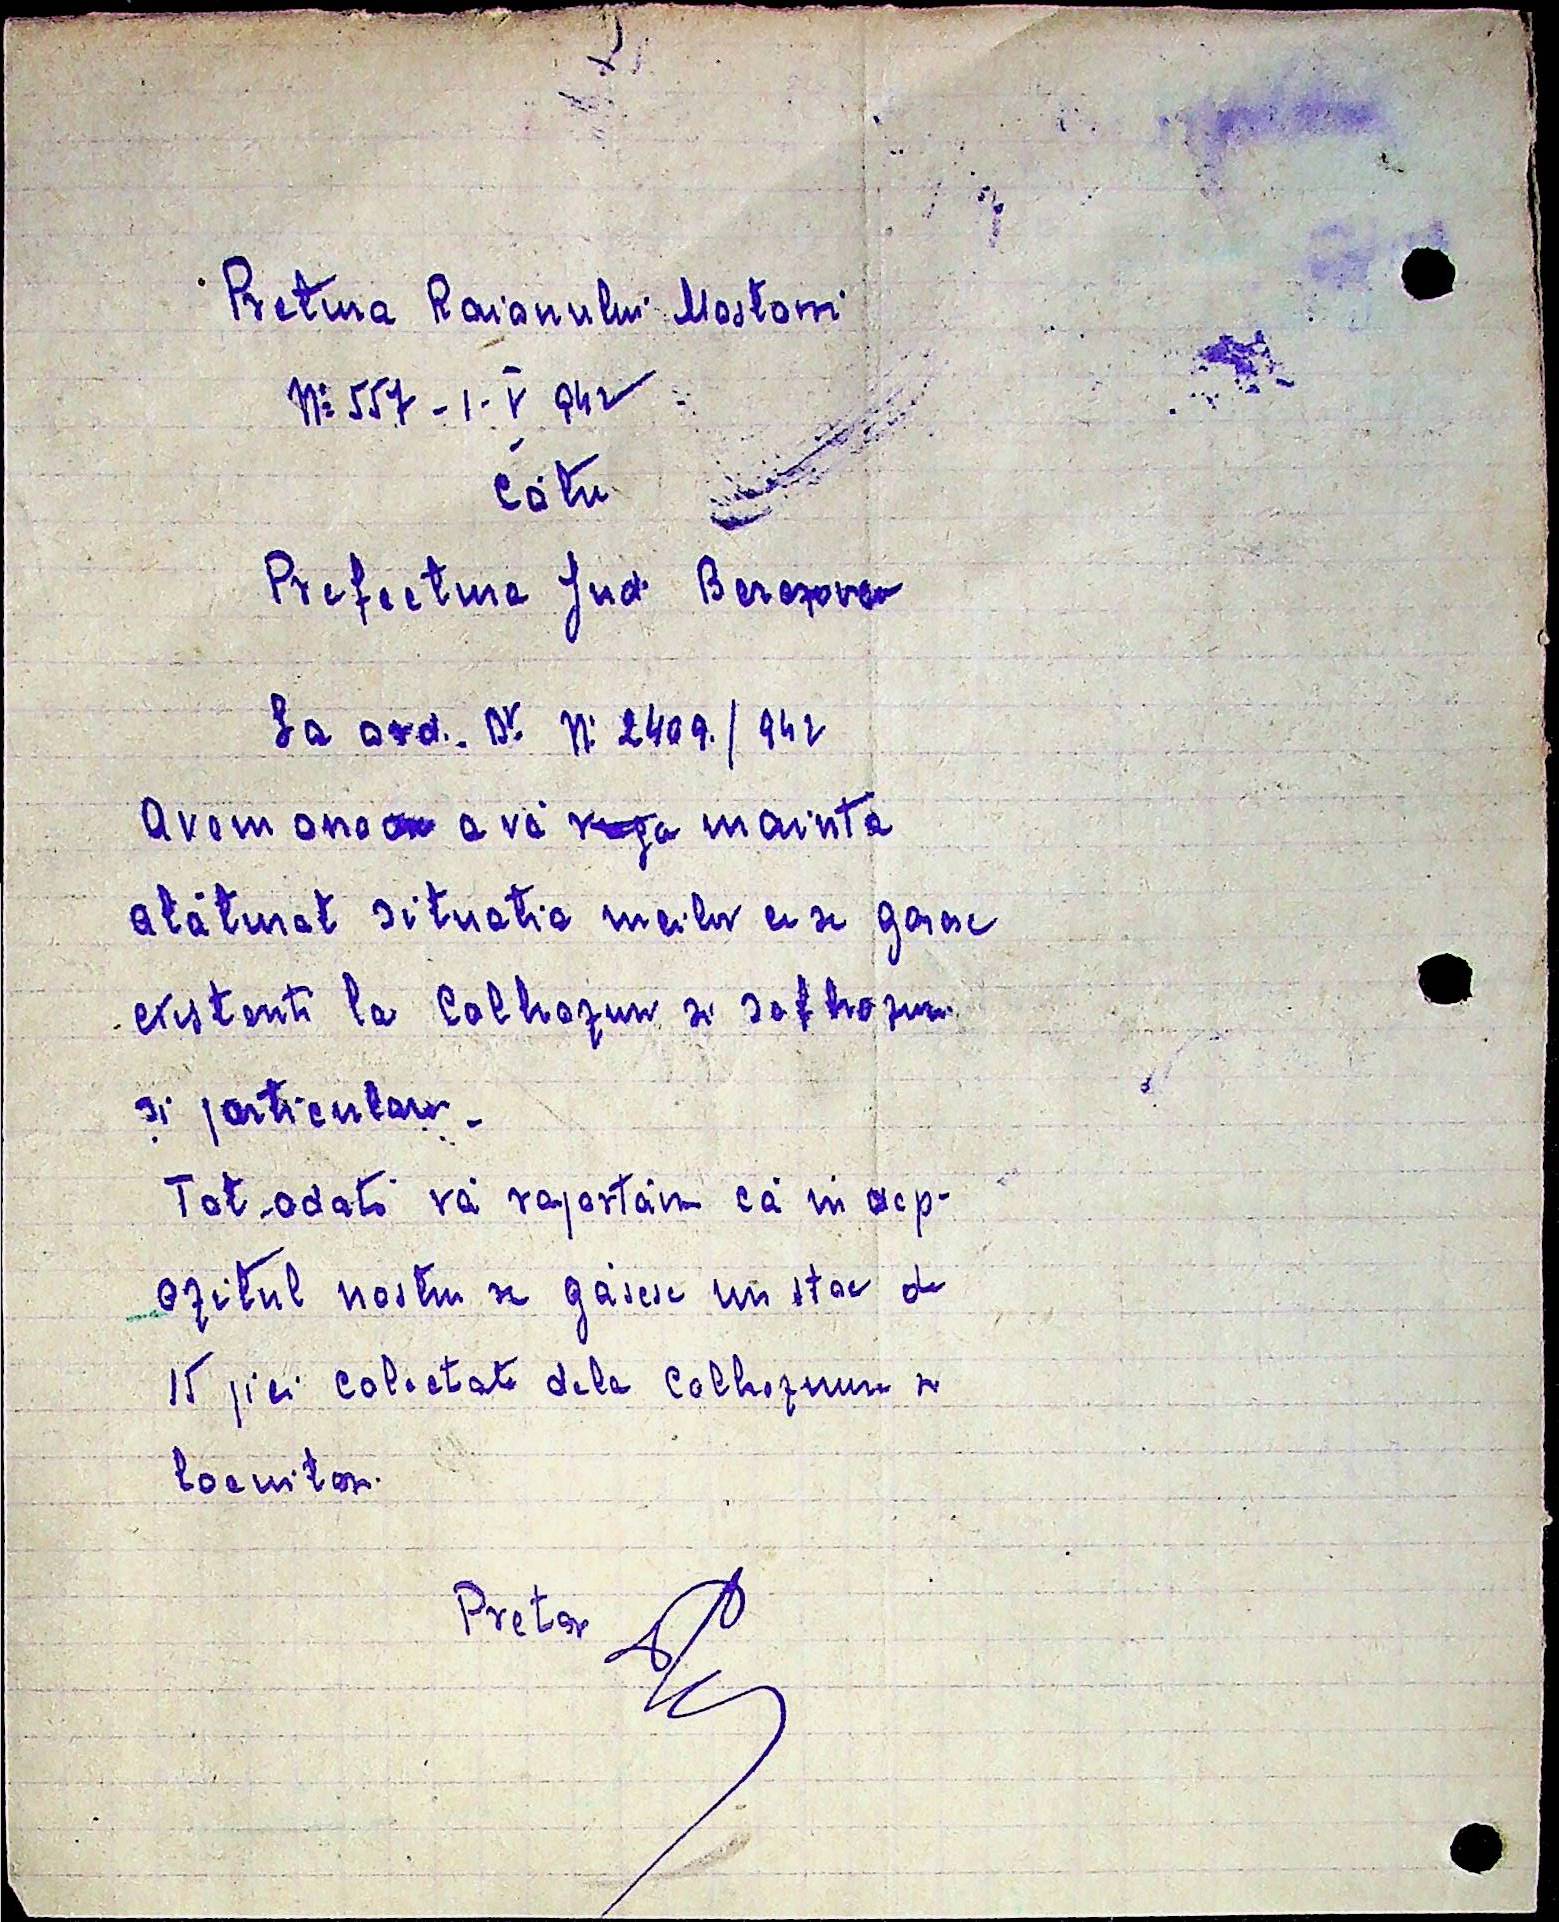 Pretura Raionului Mostovoi
Nr 557 - 1 - V 942
Către
Prefectura Jud. Berezovca
La ord. Dv. Nr 2409./942
Avem onoare a vă înainta
alăturat situatia meilor ce se gasesc
existenti la Colhozuri si sofhozuri
si particulari.-
Tot-odată vă raportăm că in dep-
ozitul nostru se găsesc un stoc de
15 piei colectate dela Colhozuri si
locuitori.
Pretor